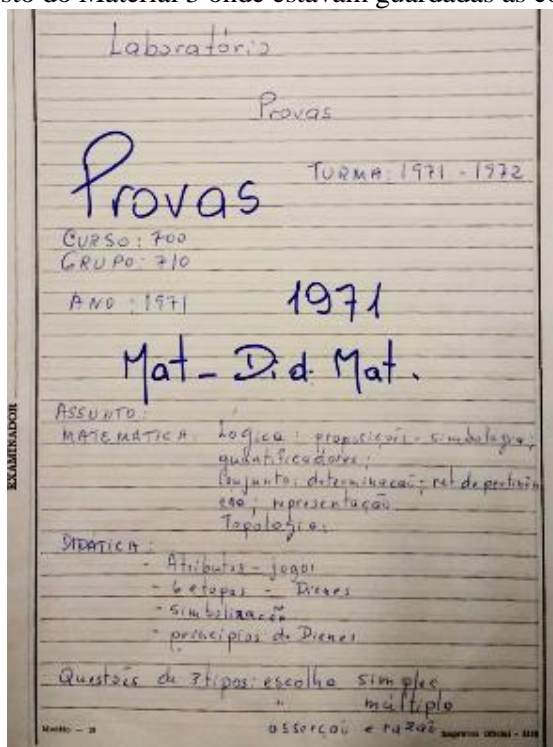 sto do Material 3 onde estavam guardadas as co
Laboratório
Provas
Provas
TURMA: 1971 - 1972
CURSO: 700
GRUPO: 710
ANO: 1971
1971
Mat - Did. Mat.
ASSUNTO:
MATEMÁTICA: Lógica: proposições - simbologia;
quantificadores;
Conjunto: determinação; rel de pertinên
cia; representação
Topologia:
DIDÁTICA:
- Atributos - jogos
- 6 etapas - Dienes
- simbolização
- princípios de Dienes
Questões de 3 tipos: escolha simples
" múltipla
asserção e razão
EXAMINADOR
Modêlo - 21
Imprensa Oficial -